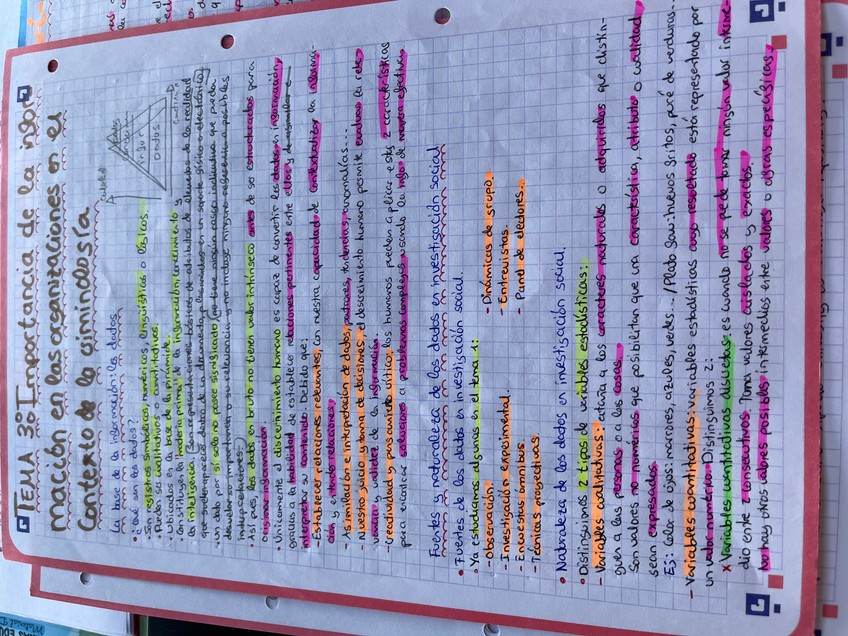 TEMA 3: Importancia de la infor-
mación en las organizaciones en el
Contexto de la ciminología
La base de la información: los datos
• ¿Qué son los datos?
- Son registros simbólicos, numéricos, lingüísticos o lógicos.
- Pueden ser cualitativos o cuantitativos.
- Ubicados en la base de la pirámide.
- Constituyen la materia prima de la información, conocimiento y
la inteligencia (son representaciones básicas de atributos de elementos de la realidad
que suelen aparecer dentro de un documento, plasmados en un soporte físico o electrónico)
- Un dato por sí solo no posee significado (no tiene ningún rasgo indicativo que pueda
desvelar su importancia o su relevancia y no incluye ninguna respuesta a posibles
interpretaciones.
- Así pues, los datos en bruto no tienen valor intrínseco antes de ser estructurados para
originar información.
• Unicamente el discernimiento humano es capaz de convertir los datos en información
gracias a la habilidad de establecer relaciones pertinentes entre ellos y
interpretar su contenido. Debido que:
- Establecer relaciones relevantes, con nuestra capacidad de contextualizar la informa-
ción y creando relaciones.
- Asimilación e interpretación de datos, patrones, tendencias, anomalías...
- Nuestro juicio y toma de decisiones, el discernimiento humano permite evaluar la rele-
vancia y validez de la información.
- Creatividad y pensamiento crítico, los humanos pueden aplicar estas 2 características
para encontrar soluciones a problemas complejos usando la info de manera efectiva.
Fuentes y naturaleza de los datos en investigación social
• Fuentes de los datos en investigación social.
• Ya estudiamos algunos en el tema 1:
- Observación.
- Investigación experimental.
- Encuestas omnibus
- Técnicas proyectivas
- Dinámicas de grupo.
- Entrevistas.
- Panel de detedores.
• Naturaleza de los datos en investigación social.
• Distinguimos 2 tipos de variables estadísticas:
- Variables cualitativas: atañía a los caracteres naturales o adquiridos que distin-
guen a las personas o a las cosas.
Son valores no numéricos que posibilitan que una característica, atributo o cualidad
sean expresados.
Ej: Color de ojos: marrones, azules, verdes... / Plato Sau: huevos fritos, puré de verduras...
- Variables cuantitativas: variables estadísticas cuyo resultado está representado por
un valor numérico. Distinguimos 2:
x Variables cuantitativas discretas: es cuando no se puede tomar ningún valor interme-
dio entre 2 consecutivos. Toma valores aislados y exactos.
No hay otros valores posibles intermedios entre valores o cifras específicas.